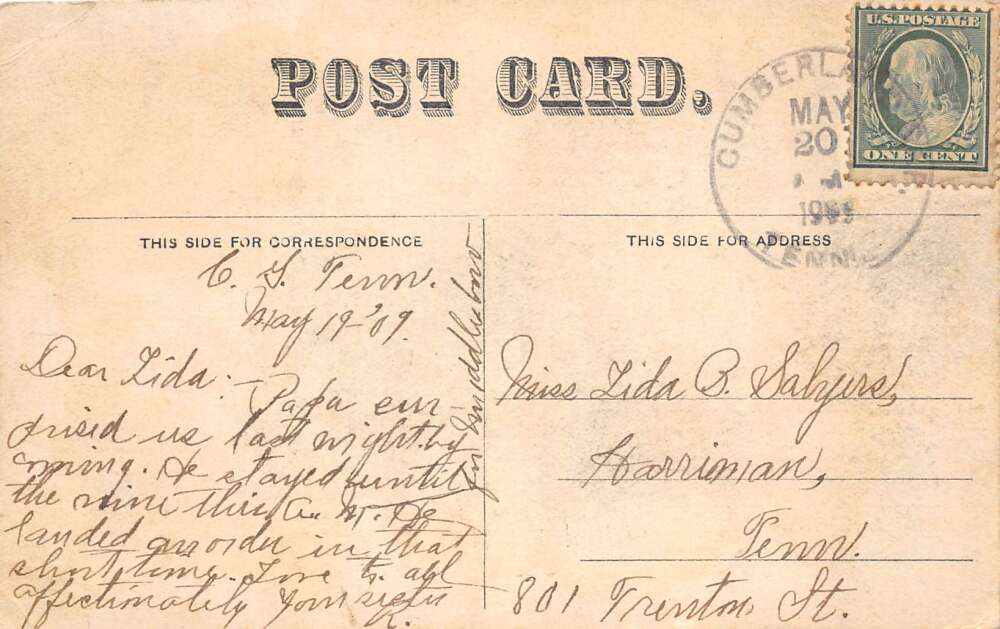 POST CARD.
U.S. POSTAGE
ONE CENT
CUMBERLA
MAY
20
1909
TENN
THIS SIDE FOR CORRESPONDENCE
THIS SIDE FOR ADDRESS
C. G. Tenn.
May 19-'09.
Dear Lida:- Papa sur
prised us last night by
coming. He stayed until
the nine this A. M. He
landed an order in that
short time. Love to all
affectionately your sister
R.
in Middlesboro
Miss Lida B. Salyers,
Harriman,
Tenn.
801 Trenton St.